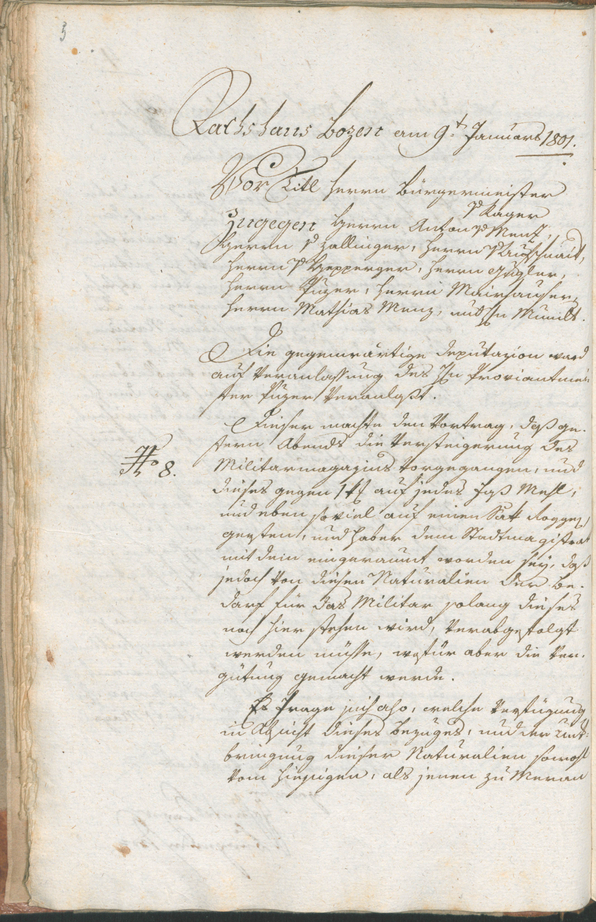 5
Rathshaus Bozen am 9t. Januars 1801.
Vor Titl Herrn Bürgermeister
v Kager
Zugegen Herrn Anton v Menz,
Herrn v Zallinger, Herrn v
Herrn v Hepperger, Herrn Gugler,
Herrn Puzer, Herrn Mairhauser,
Herrn Mathias Menz, und Hn
Die gegenwärtige Deputazion ward
auf Veranlassung des Hn Proviantmei
ster Puzer veranlaßt.
Dieser machte den Vortrag, daß ge-
stern Abends die Versteigerung des
No 8.
Militarmagazins vorgegangen, und
dieses gegen 1 auf jedes Faß Mehl,
und eben soviel auf einen Sak Roggen
gersten, und Haber dem Stadtmagistrat
mit dem eingeraumt worden sey, daß
jedoch von diesen Naturalien der Be-
darf für das Militar solang dieses
noch hier stehen wird, verabgefolgt
werden müsse, wofür aber die Ver-
gütung gemacht werde.
Es frage sich also, welche Verfügung
in Absicht dieses Bezuges, und der Unt-
bringung dieser Naturalien sowohl
vom hiesigen, als jenen zu Meran